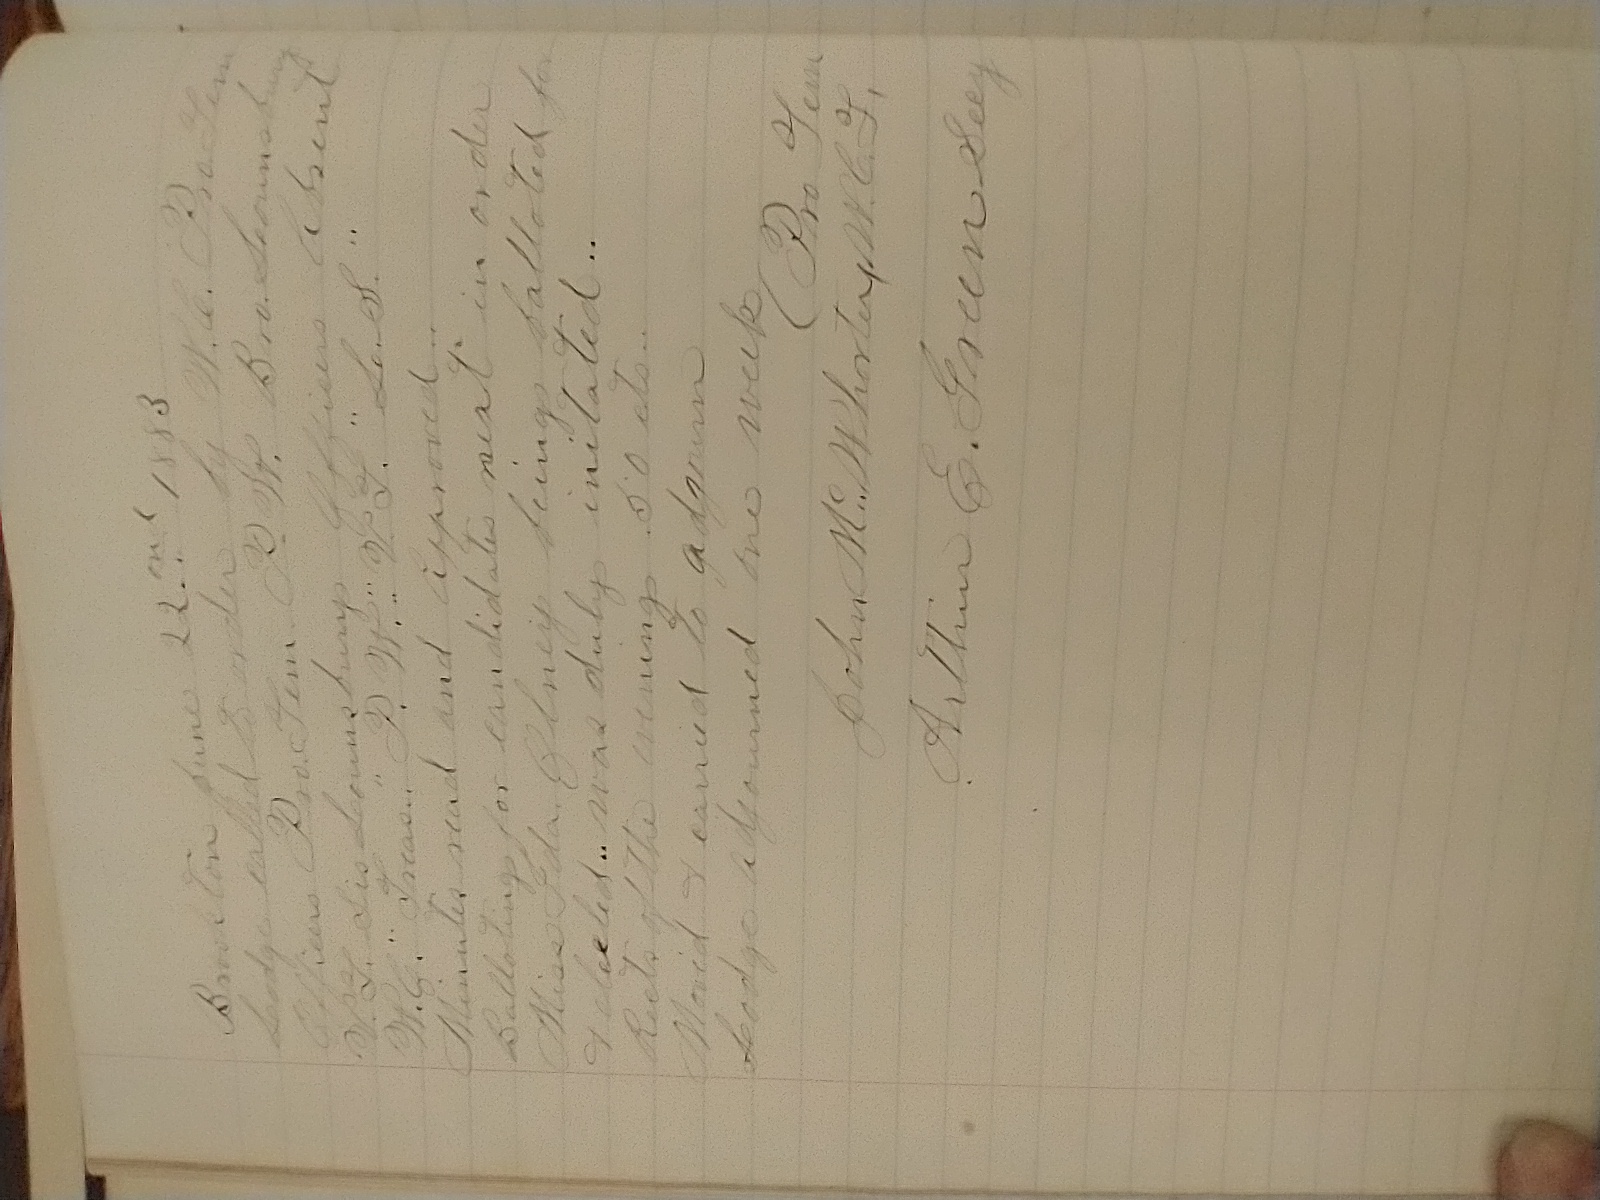 Brookton June 22.ond 1883
Lodge called to order by W.C. Pro. Tem
Officers Pro. Tem. P. W. Bro. Lounsbury
V.T. Sis Lounsbury Officers Absent
W.C." Treas.." P. W." V. T. " L. S. "
Minutes read and Approved..
Balloting for candidates next in order
Miss Ida. Olney being balloted for
& elected.. was duly initated..
Rects of the evening .50 cts..
Movid & carried to adjourn
Lodge adjourned one week
(Pro Tem
John Mc. Whorter, W.C.T,
Arthur E. Green Secy